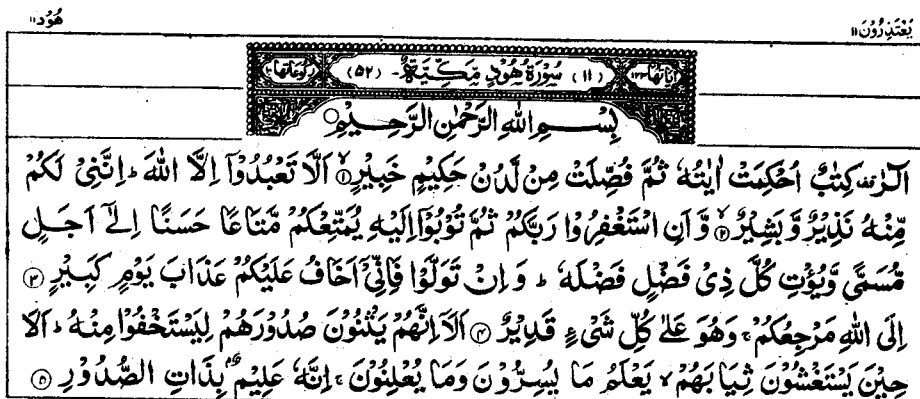 يَعْتَذِرُوْنَ ۱۱
هُوْد ۱۱
اٰيَاتُهَا ۱۲۳ (۱۱) سُوْرَةُ هُوْدٍ مَّكِّيَّةٌ (۵۲) رُكُوْعَاتُهَا ۱۰
بِسْمِ اللّٰهِ الرَّحْمٰنِ الرَّحِيْمِ
الٓرٰ كِتٰبٌ اُحْكِمَتْ اٰيٰتُهٗ ثُمَّ فُصِّلَتْ مِنْ لَّدُنْ حَكِيْمٍ خَبِيْرٍ ۙ﴿۱﴾ اَلَّا تَعْبُدُوْۤا اِلَّا اللّٰهَ ؕ اِنَّنِیْ لَكُمْ
مِّنْهُ نَذِيْرٌ وَّبَشِيْرٌ ۙ﴿۲﴾ وَّاَنِ اسْتَغْفِرُوْا رَبَّكُمْ ثُمَّ تُوْبُوْۤا اِلَيْهِ يُمَتِّعْكُمْ مَّتَاعًا حَسَنًا اِلٰۤی اَجَلٍ
مُّسَمًّی وَّيُؤْتِ كُلَّ ذِیْ فَضْلٍ فَضْلَهٗ ؕ وَاِنْ تَوَلَّوْا فَاِنِّیْۤ اَخَافُ عَلَيْكُمْ عَذَابَ يَوْمٍ كَبِيْرٍ ﴿۳﴾
اِلَی اللّٰهِ مَرْجِعُكُمْ ۚ وَهُوَ عَلٰی كُلِّ شَیْءٍ قَدِيْرٌ ﴿۴﴾ اَلَاۤ اِنَّهُمْ يَثْنُوْنَ صُدُوْرَهُمْ لِيَسْتَخْفُوْا مِنْهُ ؕ اَلَا
حِيْنَ يَسْتَغْشُوْنَ ثِيَابَهُمْ ۙ يَعْلَمُ مَا يُسِرُّوْنَ وَمَا يُعْلِنُوْنَ ۚ اِنَّهٗ عَلِيْمٌۢ بِذَاتِ الصُّدُوْرِ ﴿۵﴾